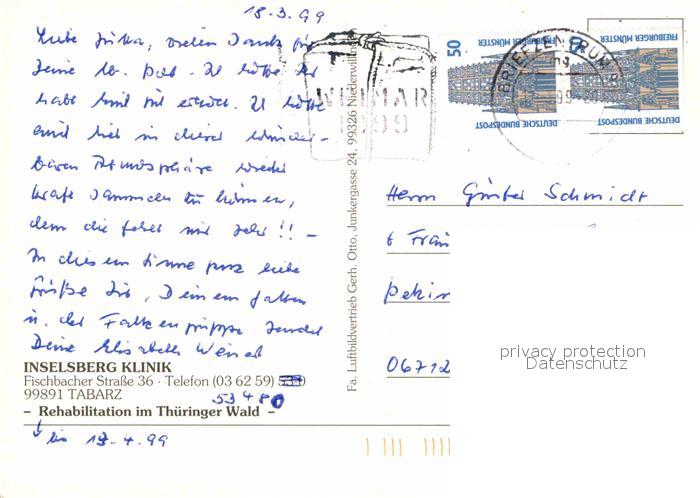 18.3.99
Liebe Jutta, vielen Dank für
Deine lb. Post. Ich hoffe
habt mit mir Ich hoffe
mich hier in dieser wunder-
baren Atmosphäre wieder
Kraft sammeln zu können,
denn die fehlt mir sehr!! –
In diesem Sinne ganz liebe
Grüße Dir, Deinem
u. der sendet
Deine Elisabeth
INSELSBERG KLINIK
Fischbacher Straße 36 · Telefon (03 62 59)
53480
99891 TABARZ
– Rehabilitation im Thüringer Wald –
bis 4.99
Fa. Luftbildvertrieb Gerh. Otto, Junkergasse 24, 99326 Niederwillin
WEIMAR
1999
50
FREIBURGER MÜNSTER
DEUTSCHE BUNDESPOST
FREIBURGER MÜNSTER
DEUTSCHE BUNDESPOST
BRIEFZENTRUM
Herrn Günter Schmidt
06712
privacy protection
Datenschutz